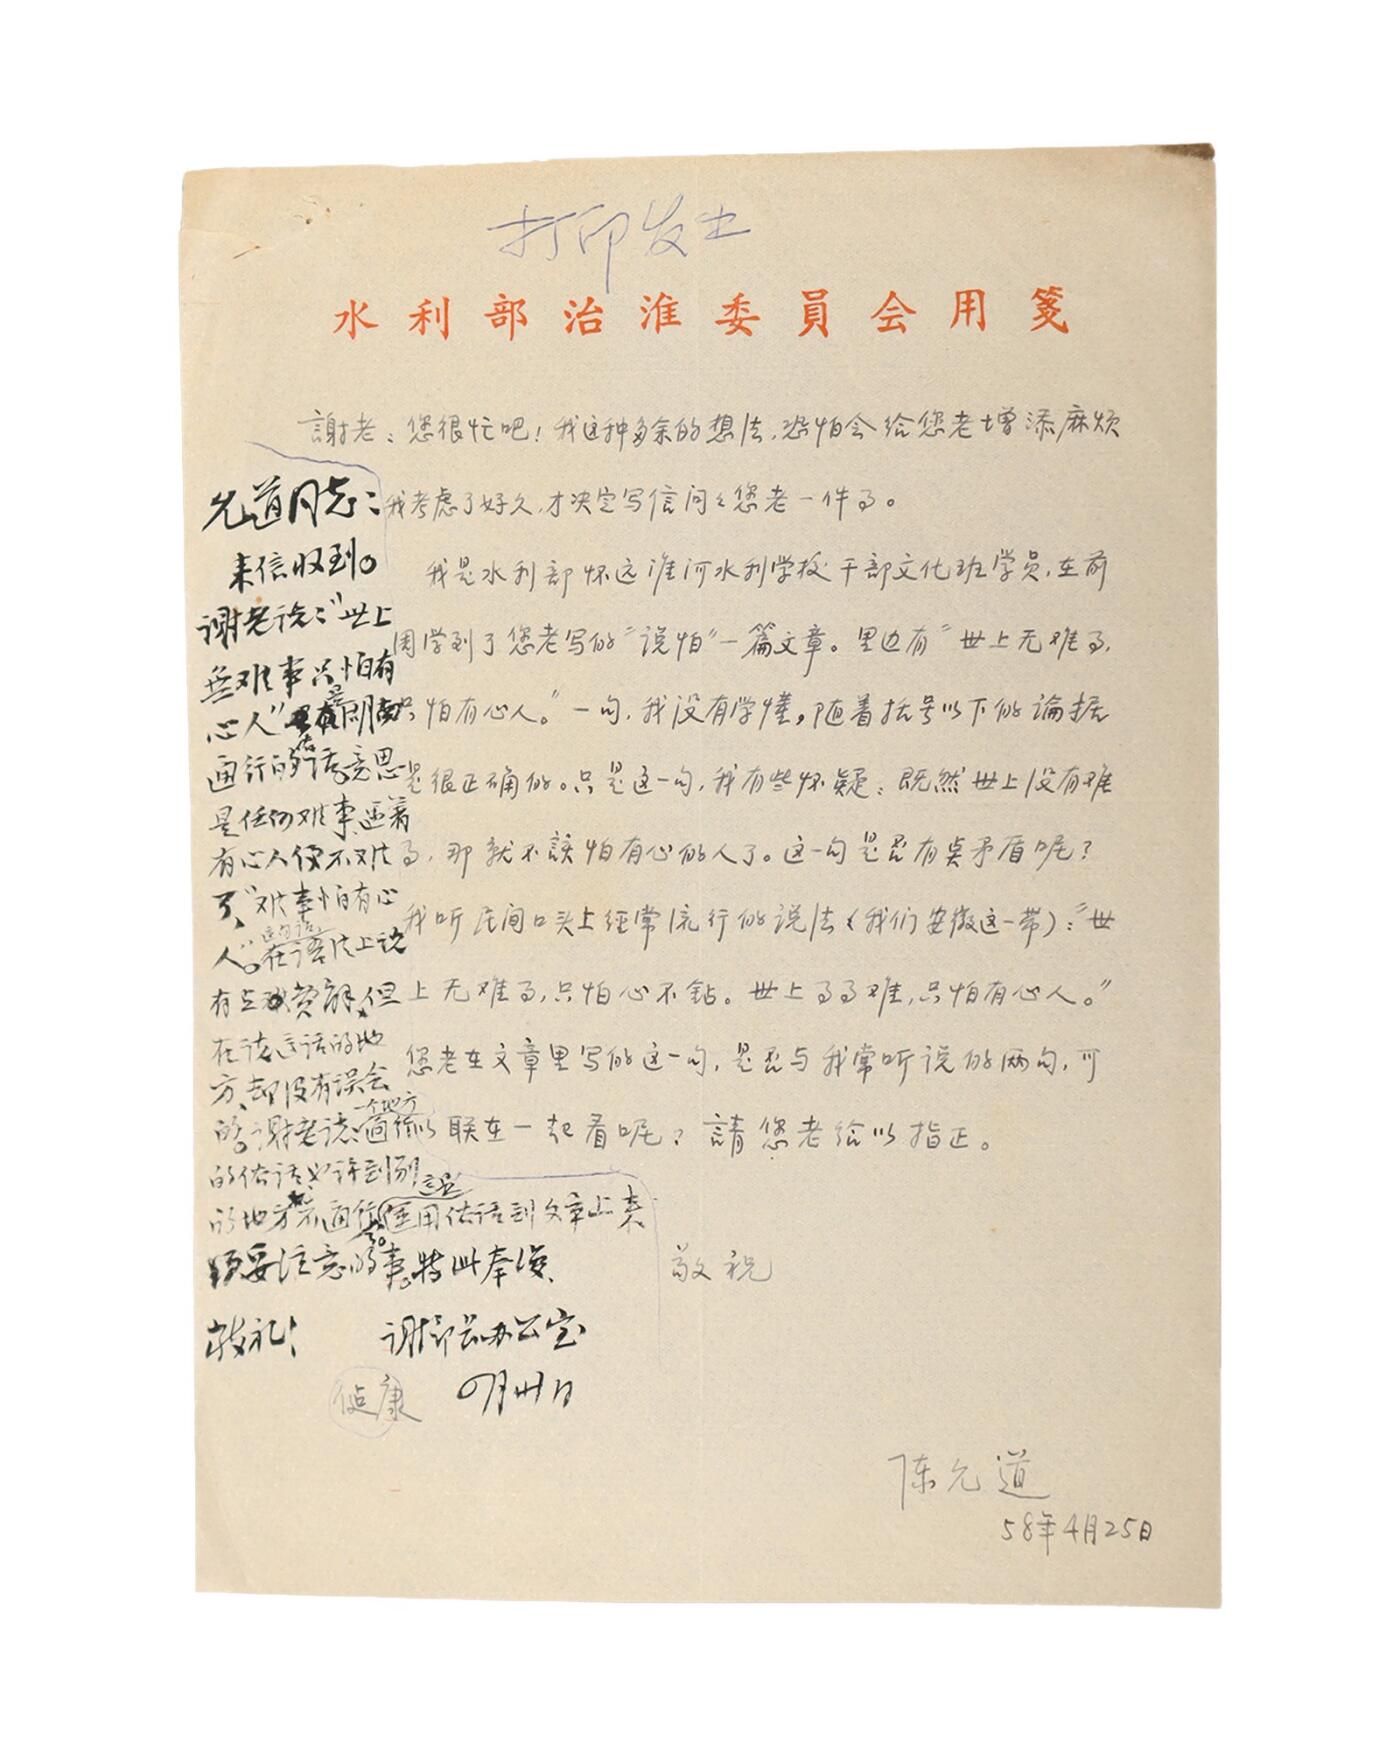 打印发出
水利部治淮委員会用箋
謝老：您很忙吧！我这种多余的想法，恐怕会给您老增添麻烦
我考虑了好久，才决定写信问々您老一件事。
我是水利部怀远淮河水利学校干部文化班学员，在前
周学到了您老写的“说怕”一篇文章。里边有“世上无难事，
只怕有心人。”一句，我没有学懂。随着括号以下的论据
是很正确的。只是这一句，我有些怀疑：既然世上没有难
事，那就不該怕有心的人了。这一句是否有矣矛盾呢？
我听民间口头上经常流行的说法（我们安徽这一带）：“世
上无难事，只怕心不钻。世上事事难，只怕有心人。”
您老在文章里写的这一句，是否与我常听说的两句，可
以联在一起看呢？請您老给以指正。
敬祝
健康
陈允道
58年4月25日
允道同志：
来信收到。
谢老说：“世上
無难事只怕有
心人”是湖南
通行的俗话，意思
是任何难事，遇着
有心人便不难
了，“难事怕有心
人”。这句话在语法上说
有点费解，但
在说这话的地
方，却没有误会
的。谢老说：一个地方通行
的俗话也许到别
的地方不通行，这是用俗话到文章上来
须要注意的事。特此奉復，
敬礼！
谢部长办公室
四月卅日